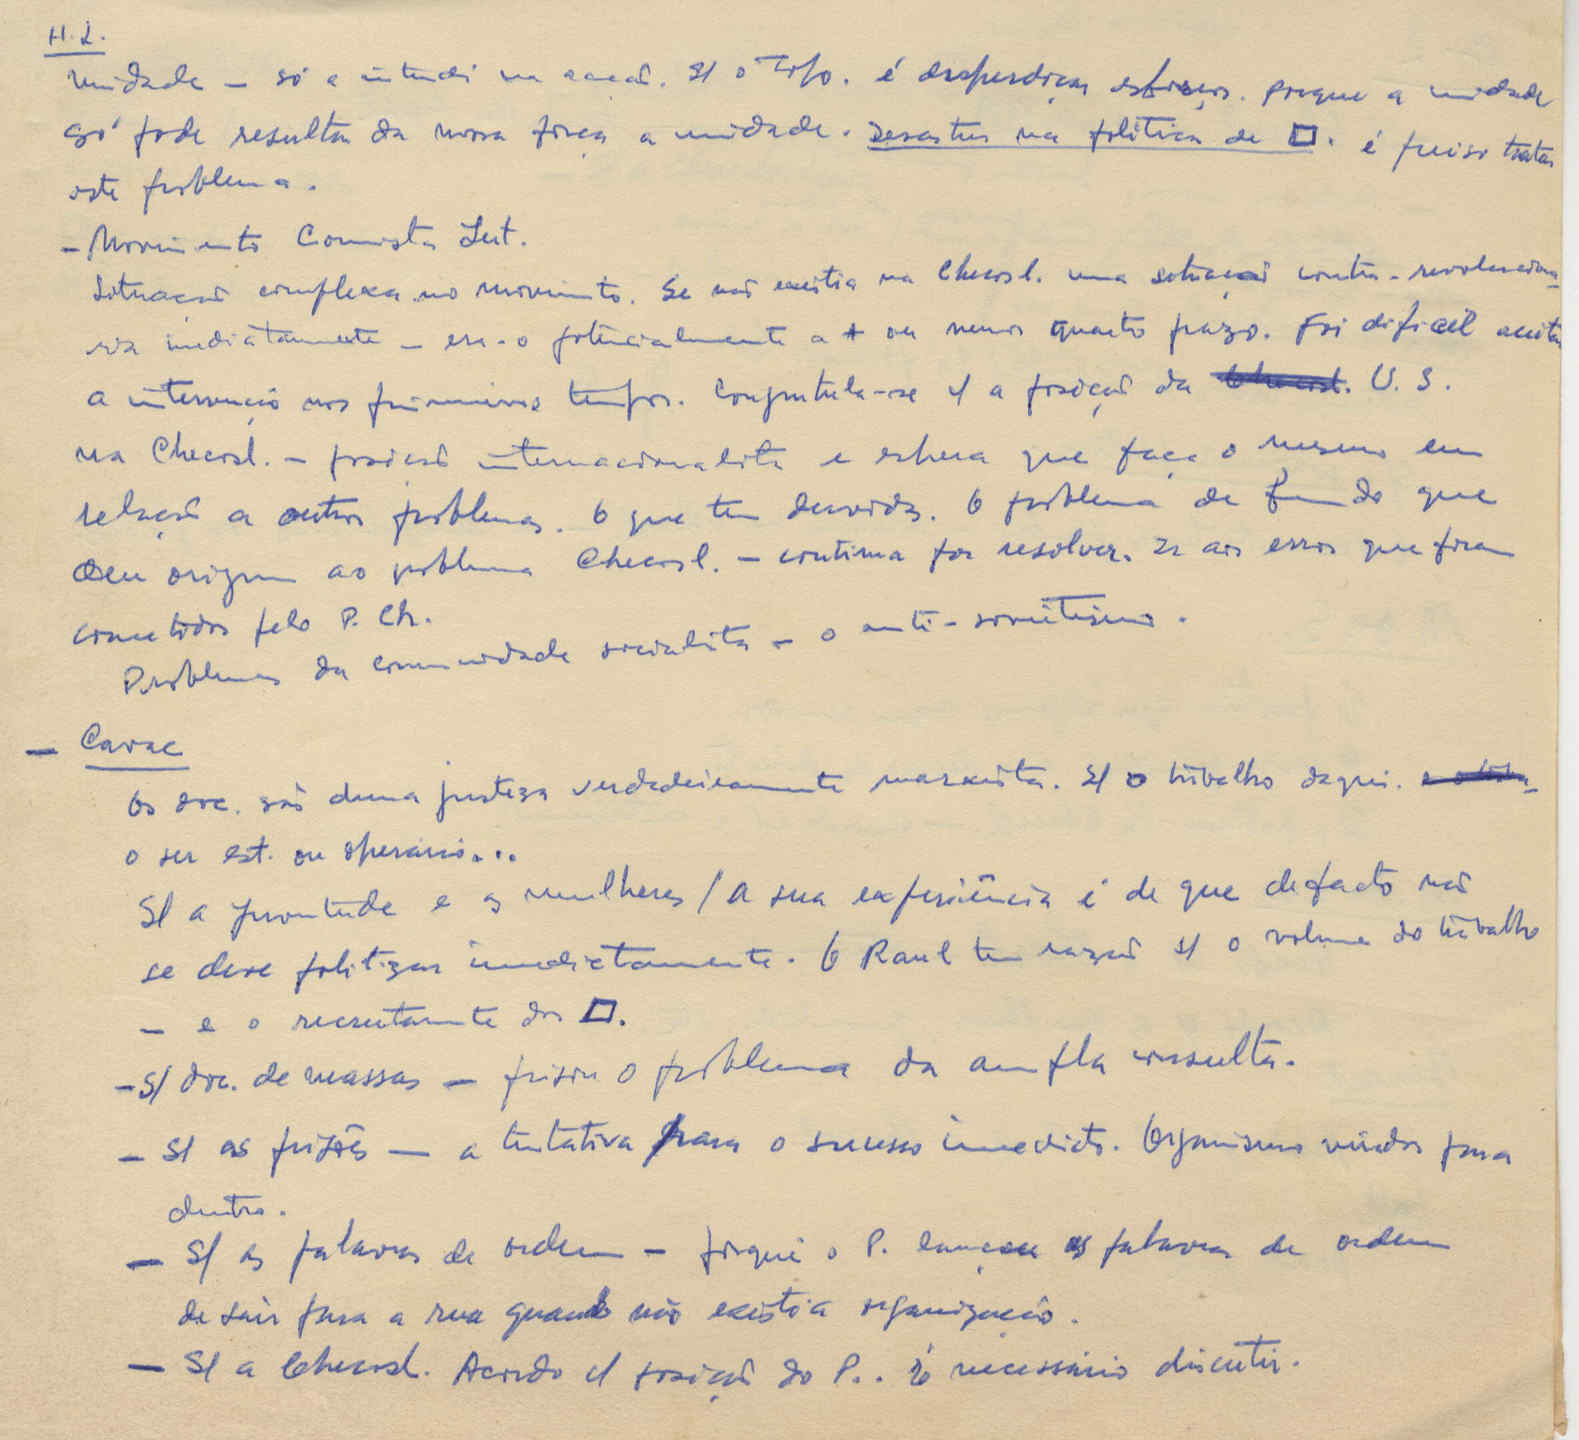 H. L.
unidade – só a entendi na acção. S/ o é desperdiçar esforços. Porque a unidade
só pode resultar da nossa força a unidade. Desastres na política de □. é preciso tratar
este problema.
– Movimento Comunista Int.
Situação complexa no movimento. Se não existia na Checosl. uma situação contra-revolucioná-
ria imediatamente – era-o potencialmente a + ou menos prazo. Foi difícil aceitar
a intervenção nos primeiros tempos. Congratula-se c/ a posição da U. S.
na Checosl. – posição internacionalista e espera que faça o mesmo em
relação a outros problemas. O que tem dúvidas. O problema de fundo que
deu origem ao problema Checosl. – continua por resolver. aos erros que foram
cometidos pelo P. Ch.
Problemas da comunidade socialista – o anti-sovietismo.
– Cavac
Os doc. são duma justeza verdadeiramente marxista. S/ o trabalho daqui.
o ser est. ou operário...
S/ a juventude e as mulheres / A sua experiência é de que de facto não
se deve politizar imediatamente. O Raul tem razão s/ o volume do trabalho
– e o recrutamento dos □.
– S/ doc. de massas – frisou o problema da ampla consulta.
– S/ as prisões – a tentativa para o sucesso imediato. Organismos virados para
dentro.
– S/ as palavras de ordem – porquê o P. lançou as palavras de ordem
de sair para a rua quando não existia organização.
– S/ a Checosl. Acordo c/ posição do P.. É necessário discutir.